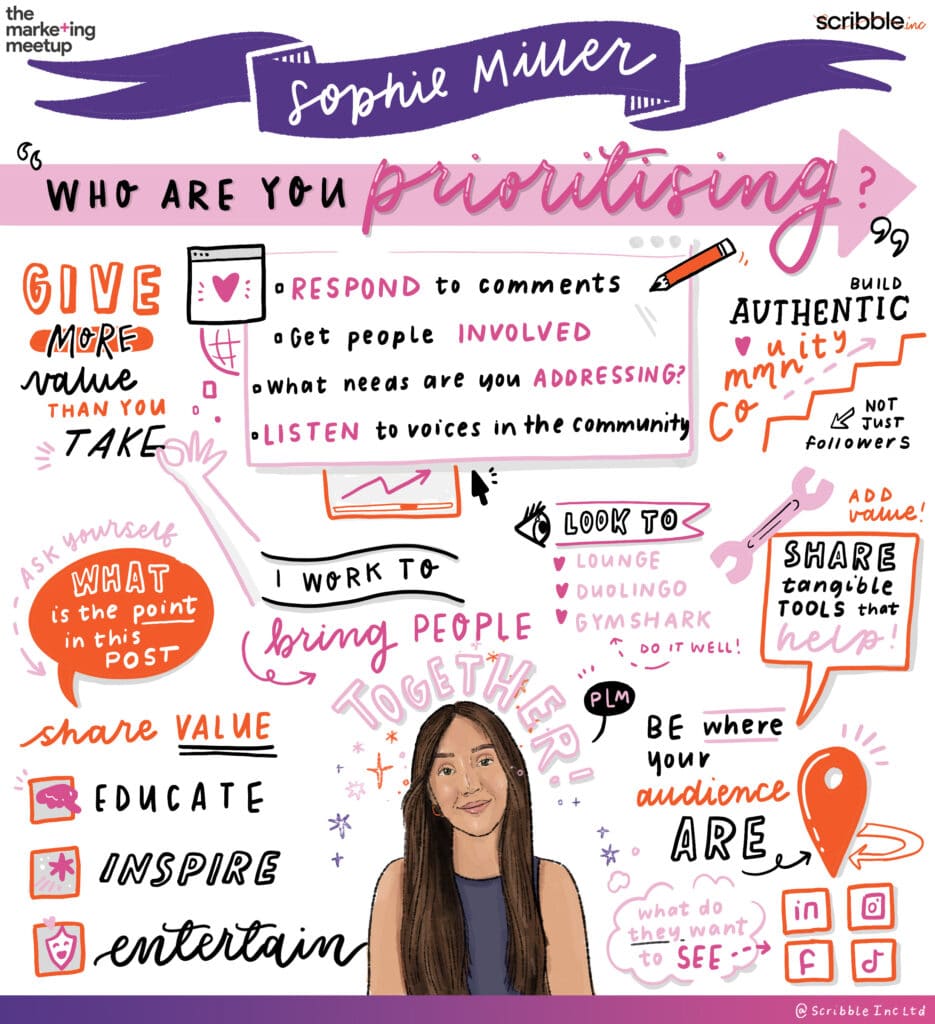 the
marke+ing
meetup
scribble.inc
Sophie Miller
“ WHO ARE YOU prioritising? ”
GIVE
MORE
value
THAN YOU
TAKE
RESPOND to comments
Get people INVOLVED
What needs are you ADDRESSING?
LISTEN to voices in the community
BUILD
AUTHENTIC
Community
NOT
JUST
followers
ASK yourself
WHAT
is the point
in this
POST
I WORK TO
bring PEOPLE
TOGETHER!
LOOK TO
LOUNGE
DUOLINGO
GYMSHARK
DO IT WELL!
ADD
value!
SHARE
tangible
TOOLS that
help!
share VALUE
EDUCATE
INSPIRE
entertain
PLM
BE where
your
audience
ARE
what do
they want
to SEE
in
f
@Scribble Inc Ltd